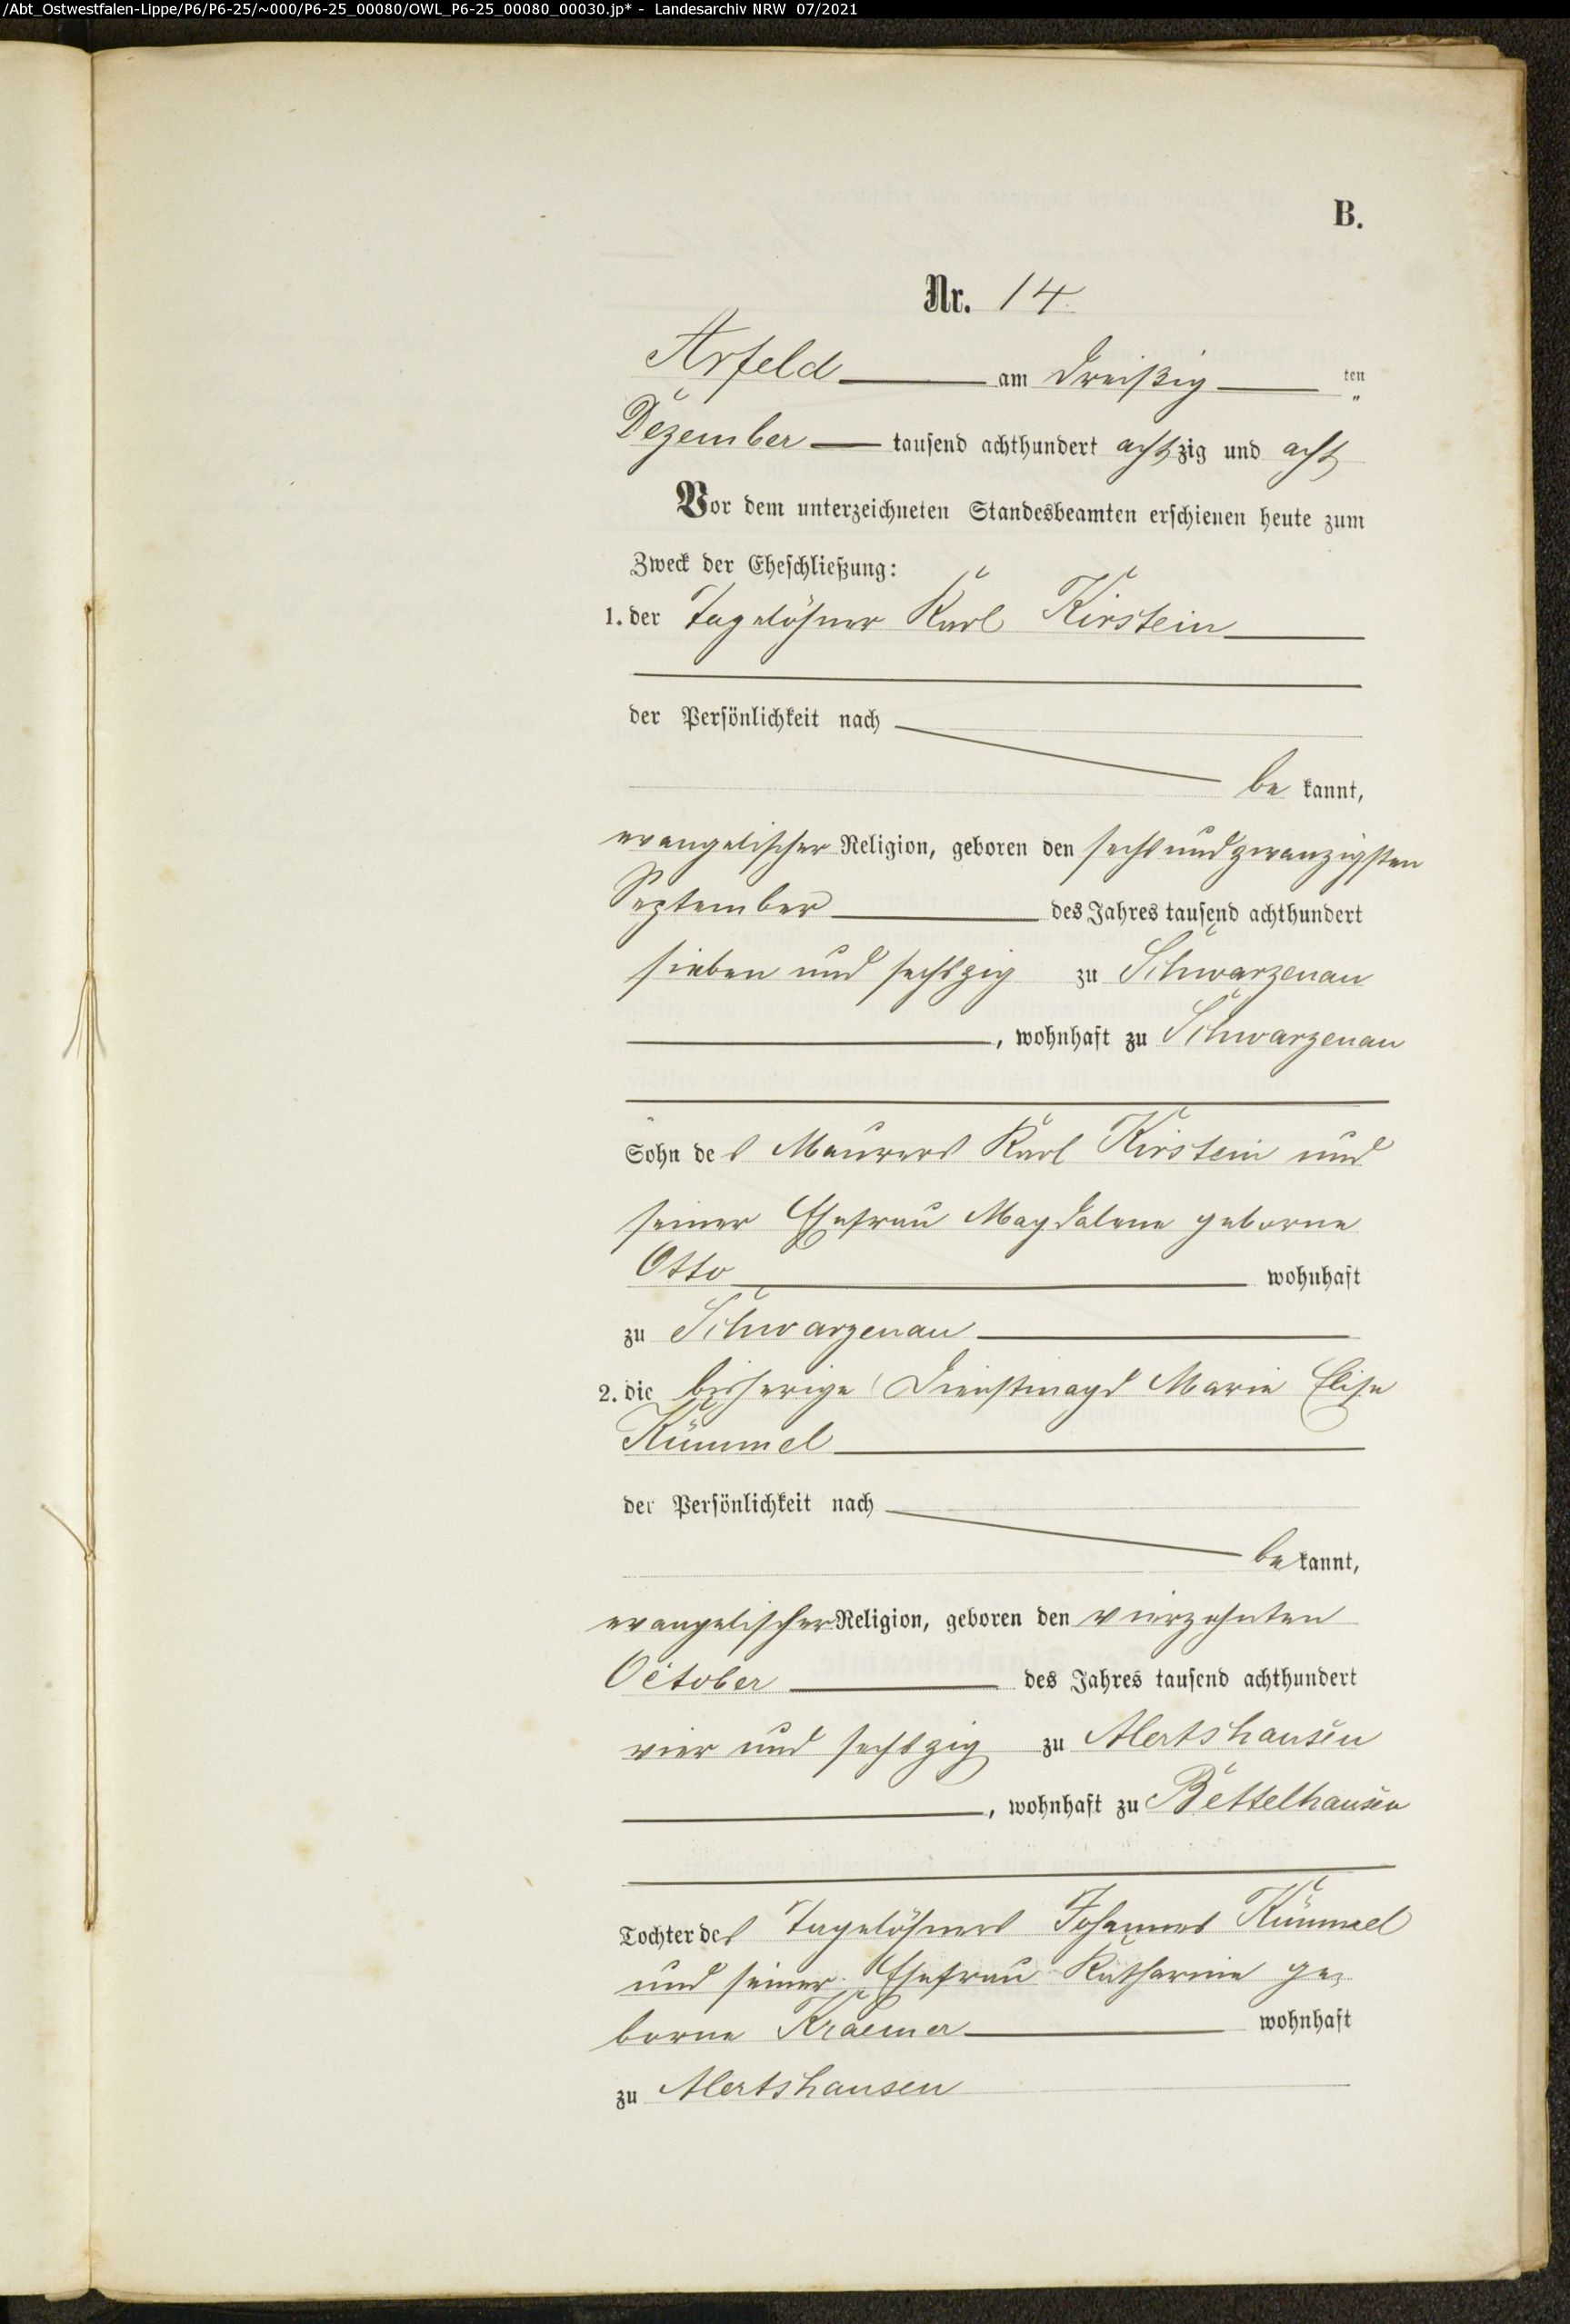 /Abt_Ostwestfalen-Lippe/P6/P6-25/~000/P6-25_00080/OWL_P6-25_00080_00030.jp* - Landesarchiv NRW 07/2021
B.
Nr. 14
Arfeld am dreißig ten
Dezember tausend achthundert achtzig und acht
Vor dem unterzeichneten Standesbeamten erschienen heute zum
Zweck der Eheschließung:
1. der Tagelöhner Karl Kirstein
der Persönlichkeit nach
be kannt,
evangelischer Religion, geboren den sechsundzwanzigsten
September des Jahres tausend achthundert
sieben und sechszig zu Schwarzenau
, wohnhaft zu Schwarzenau
Sohn des Maurers Karl Kirstein und
seiner Ehefrau Magdalene geborne
Otto wohnhaft
zu Schwarzenau
2. die bisherige Dienstmagd Marie Elise
Kümmel
der Persönlichkeit nach
be kannt,
evangelischer Religion, geboren den vierzehnten
October des Jahres tausend achthundert
vier und sechszig zu Alertshausen
, wohnhaft zu Bettelhausen
Tochter des Tagelöhners Johannes Kümmel
und seiner Ehefrau Katharine ge-
borne Kraemer wohnhaft
zu Alertshausen